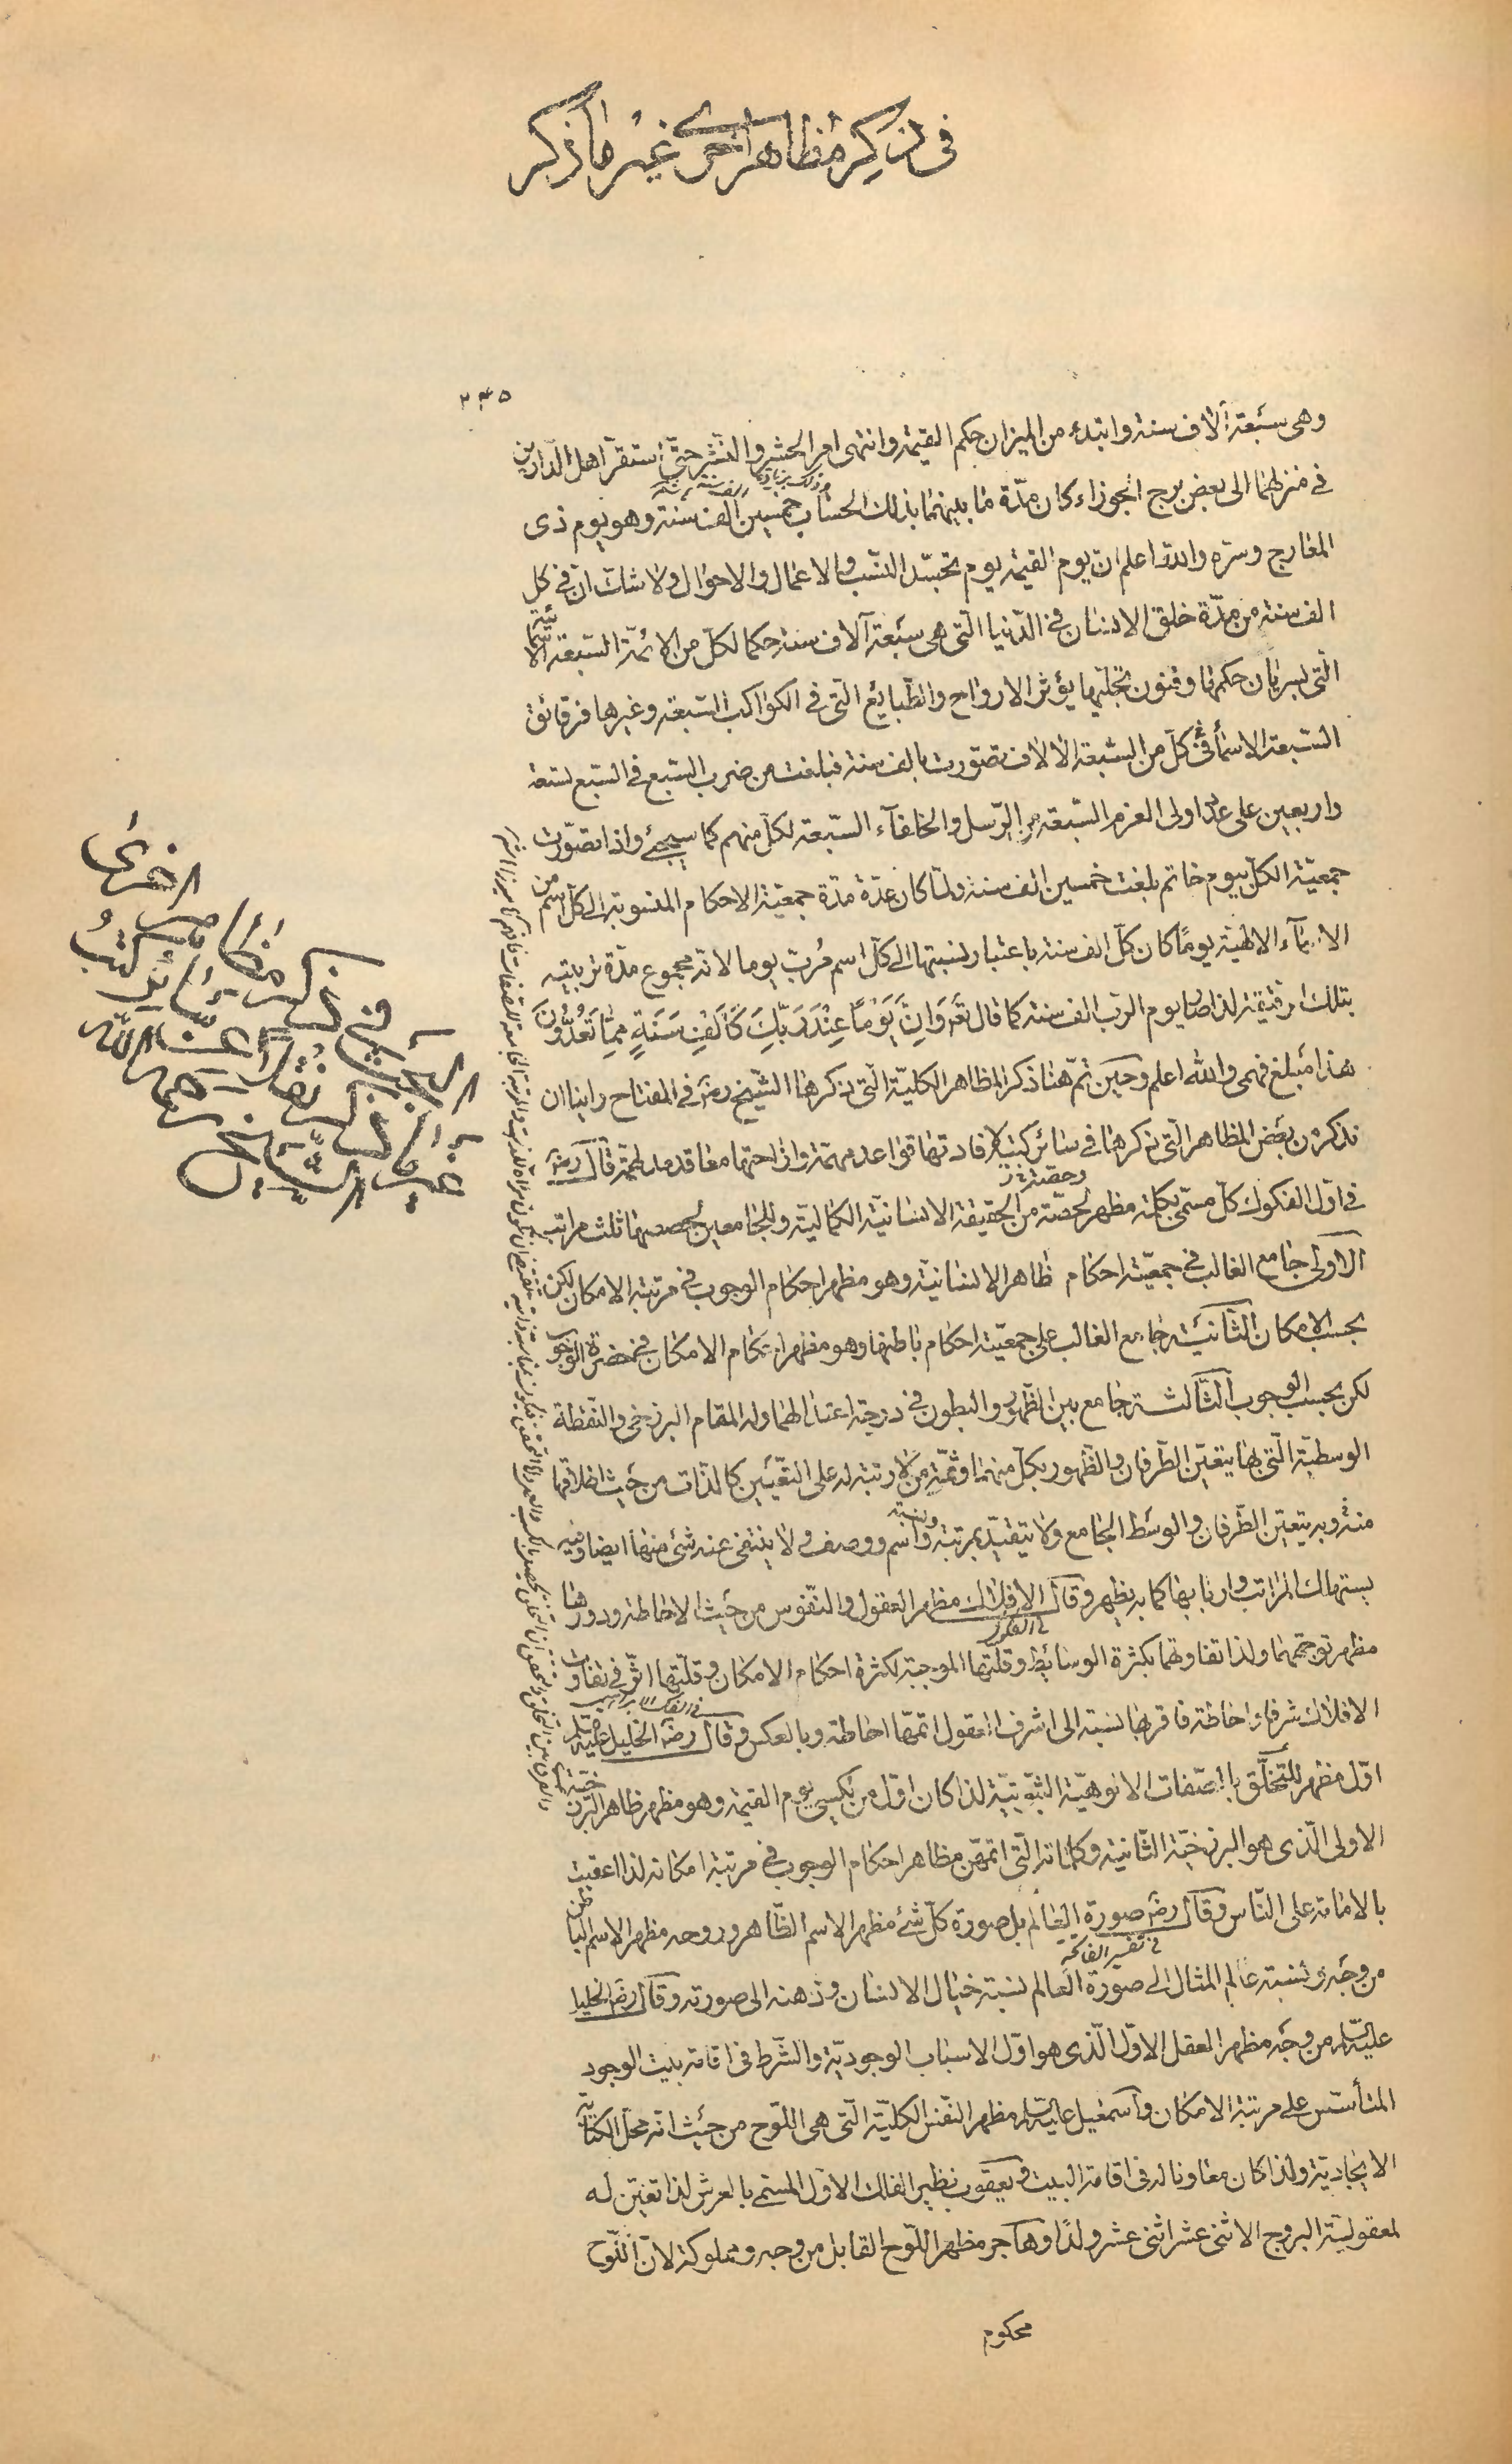 في ذكر مظاهر اخرى غير ما ذكر
٢٣٥
وهى سبعة آلاف سنة وابتدء من الميزان حكم القيمة وانتهى امر الحشر والنشر حتّى استقرّ اهل الدّارين
فى منزلهما الى بعض برج الجوزاء كان مدّة ما بينهما بذلك الحساب خمسين الف سنة وهو يوم ذى
المعارج وسرّه والله اعلم ان يوم القيمة يوم تجسّد النّسب والاعمال والاحوال ولا شك انّ فى كل
الف سنة من مدّة خلق الانسان فى الدّنيا الّتى هى سبعة آلاف سنة حكما لكلّ من الائمّة السّبعة الاسمائيّة
الّتى بسريان حكمها وفنون تجلّيها يؤثر الارواح والطّبايع الّتى فى الكواكب السّبعة وغيرها فرقائق
السّبعة الاسمائى فى كلّ من السّبعة الآلاف تصوّرت بالف سنة فبلغت من ضرب السّبع فى السّبع تسعة
واربعين على عدد اولى العزم السّبعة من الرّسل والخلفآء السّبعة لكلّ منهم كما سيجئ واذا تصوّرت
جمعيّة الكلّ بيوم خاتم بلغت خمسين الف سنة ولمّا كان عدّة مدّة جمعيّة الاحكام المنسوبة الى كلّ اسم من
الاسمآء الالهيّة يومًا كان كلّ الف سنة باعتبار نسبتها الى كلّ اسم مُربّ يوما لانّه مجموع مدّة تربيته
بتلك الرقيقة لذا صار يوم الربّ الف سنة كما قال تعَ وَاِنَّ يَوْمًا عِنْدَ رَبِّكَ كَاَلْفِ سَنَةٍ مِمَّا تَعُدُّونَ
هذا مبلغ فهمى والله اعلم وحين تمّ هنا ذكر المظاهر الكليّة الّتى ذكرها الشّيخ رضَ فى المفتاح راينا ان
نذكر من بعض المظاهر الّتى ذكرها فى سائر كتبه لافادتها قواعد مهمّة وازاحتها معاقد مدلهمّة قال رضَ
فى اوّل الفكوك كلّ مسمّى بكلمة مظهر لحصّة من الحقيقة الانسانيّة الكماليّة وللجامعين لحصصها ثلث مراتب
الاولى جامع الغالب فى جمعيّته احكام ظاهر الانسانيّة وهو مظهر احكام الوجوب فى مرتبة الامكان لكن
بحسب الامكان الثّانية جامع الغالب على جمعيّته احكام باطنها وهو مظهر احكام الامكان فى حضرة الوجوب
لكن بحسب الوجوب الثّالثة جامع بين الظّهور والبطون فى درجة اعتدالهما وله المقام البرزخى والنّقطة
الوسطيّة الّتى بها يتعيّن الطّرفان والظّهور بكلّ منهما وثمّة من لا رتبة له على التّعيين كالذّات من حيث اطلاقها
منه وبه يتعيّن الطّرفان والوسط الجامع ولا يتقيّد بمرتبة واسم ووصف ولا ينتفى عنه شئ منها ايضا وفيه
يستهلك المراتب واربابها كما به يظهر وقال الافلاك مظهر العقول والنّفوس من حيث الاحاطة ودورها
مظهر توجّههما ولذا تفاوتهما بكثرة الوسائط وقلّتها الموجبة لكثرة احكام الامكان وقلّتها اثّر فى تفاوت
الافلاك شرفا واحاطة فاقربها نسبة الى اشرف العقول اتمّها احاطة وبالعكس وقال رضَ الخليل عليه السّلم
اوّل مظهر للتّخلّق بالصّفات الالوهيّة الثّبوتيّة لذا كان اوّل من يكسى يوم القيمة وهو مظهر ظاهر البرزخيّة
الاولى الّذى هو البرزخيّة الثّانية وكلماته الّتى اتمهن مظاهر احكام الوجوب فى مرتبة امكانه لذا اعقبت
بالامامة على النّاس وقال رضَ صورة العالم بل صورة كلّ شئ مظهر الاسم الظّاهر وروحه مظهر الاسم الباطن
فى تفسير الفاتحة
من وجه ونسبة عالم المثال الى صورة العالم نسبة خيال الانسان وذهنه الى صورته وقال رضَ الخليل
عليه السّلم من وجه مظهر العقل الاوّل الّذى هو اوّل الاسباب الوجوديّة والشّرط فى اقامة بيت الوجود
المتأسّس على مرتبة الامكان واسمعيل عليه السّلم مظهر النّفس الكليّة الّتى هى اللّوح من حيث انّه محلّ الكتابة
الايجاديّة ولذا كان معاونا له فى اقامة البيت ويعقوب نظير الفلك الاوّل المسمّى بالعرش لذا تعيّن له
لمعقوليّة البروج الاثنى عشر اثنى عشر ولدًا وهاجر مظهر اللّوح القابل من وجه ومملوكة لانّ اللّوح
محكوم
فى ذكر مظاهر اخرى